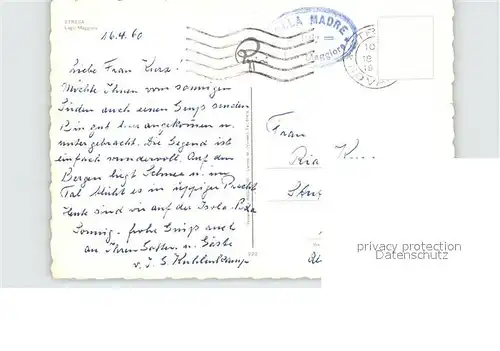 STRESA
Lago Maggiore
16.4.60
Liebe Frau Kurz!
Möchte Ihnen vom sonnigen
Süden auch einen Gruß senden
Bin gut hier angekommen u.
untergebracht. Die Gegend ist
einfach wundervoll. Auf den
Bergen liegt Schnee u. im
Tal blüht es in üppiger Pracht
Heute sind wir auf der Isola
Sonnig-frohe Grüße auch
an Ihren Gatten u. Gäste
v. I. S. Kuhlenkamp
ISOLA MADRE
Maggiore
10
18
Frau
Ria
privacy protection
ansichtskarten-center.de